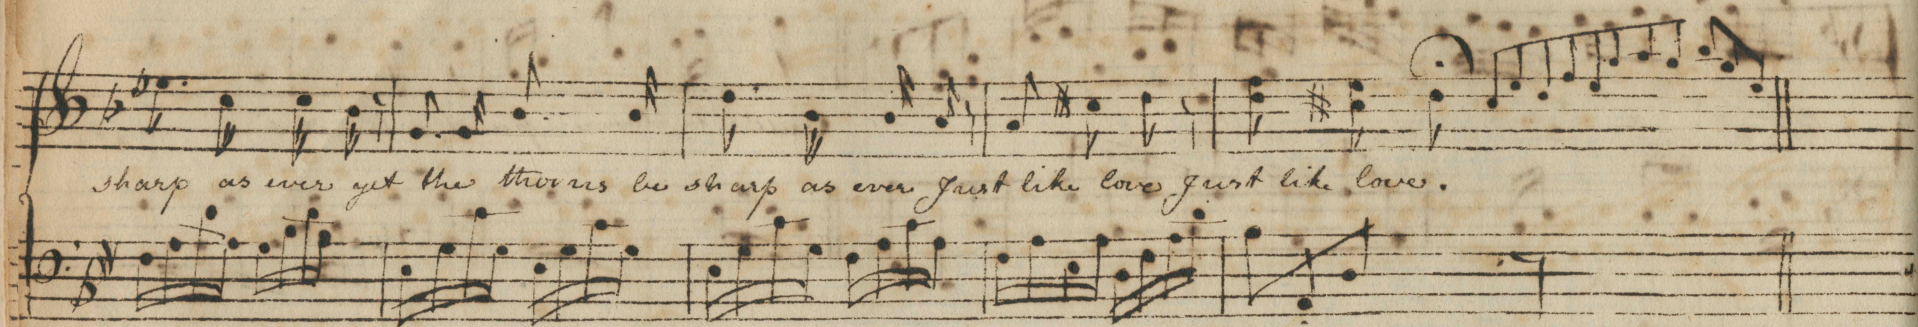 sharp as ever yet the thorns be sharp as ever Just like love Just like love.